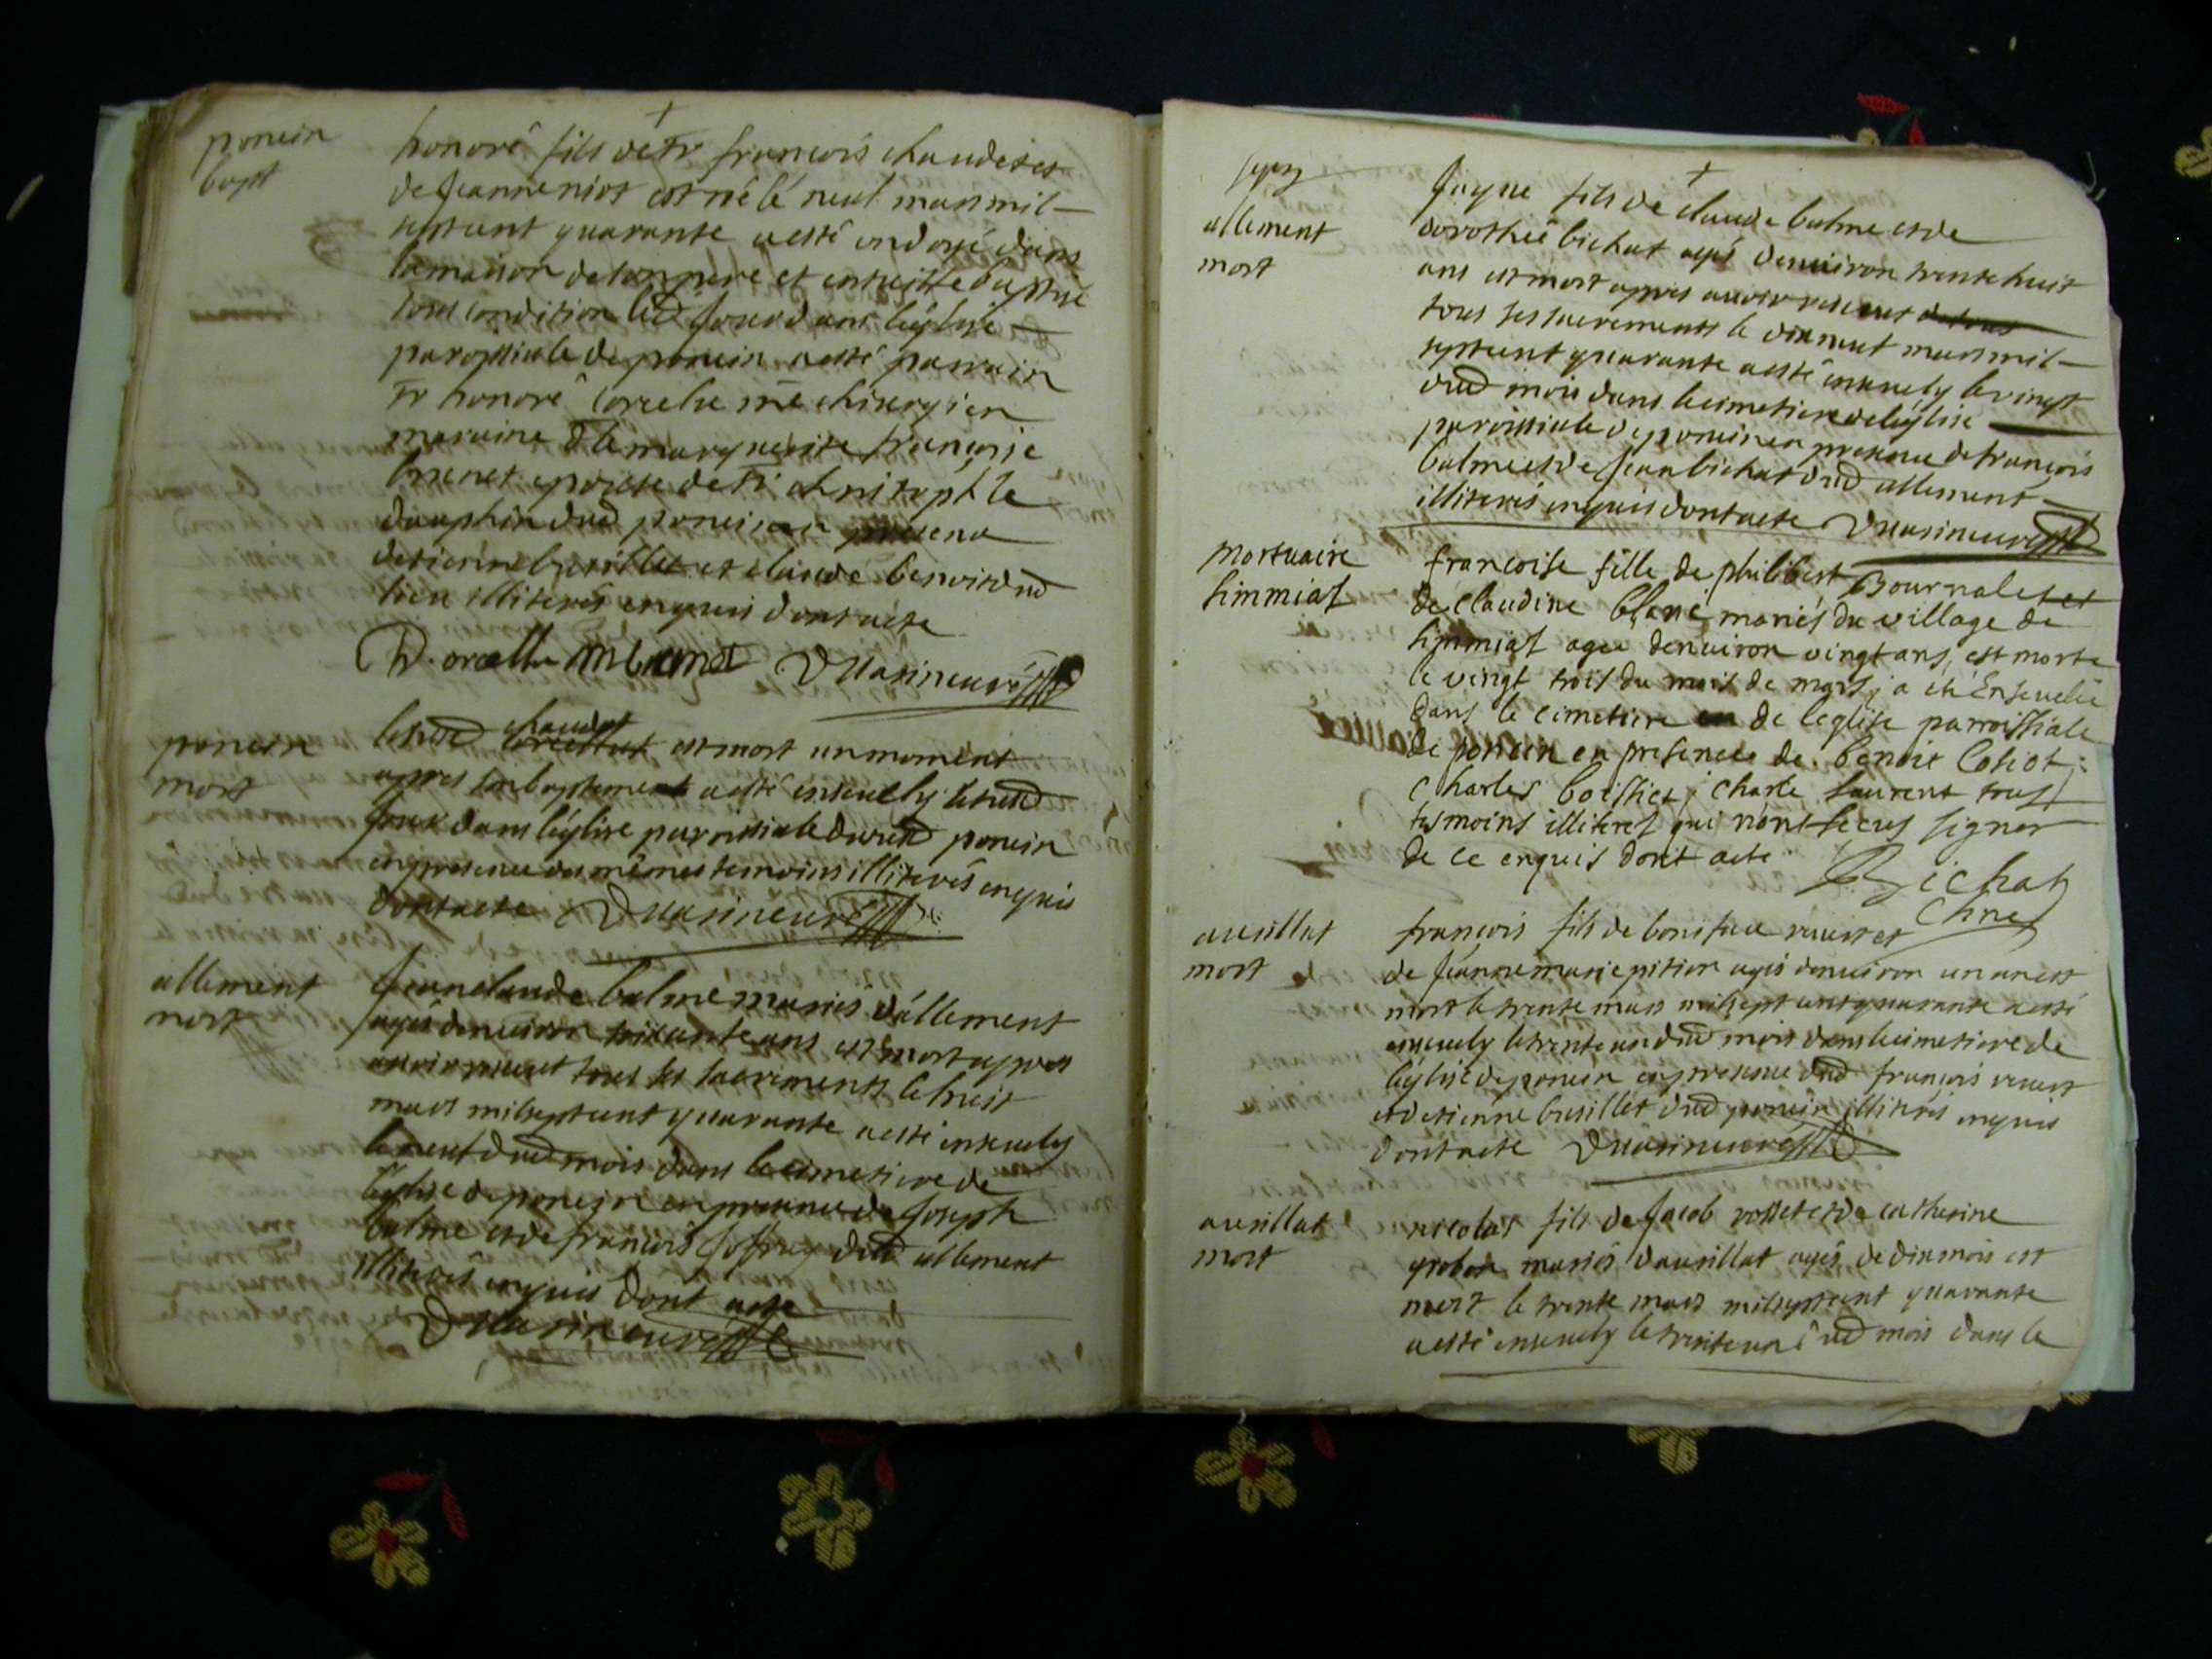 ponein
bapt
honoré fils de Sr françois chaudet et
de Jeanne niot est né le neuf mars mil
sept cent quarante a esté ondoyé dans
la maison de son pere et ensuitte baptisé
sous condition led jour dans léglise
paroissiale de ponein a esté parrain
Sr honoré mé chirurgien
maraine dlle marguerite françoise
brunet epouse de Sr christophle
dauphin dud ponein en presence
detienne busillet et claude benoit dud
lieu illiterés enquis dont acte
m brunet Duasineuré
ponein
mort
chaudet
lesusd est mort un moment
apres son baptement a esté ensevely lesusd
jour dans léglise paroissiale du susd ponein
en presence des mêmes temoins illiterés enquis
dont acte Duasineuré
allement
mort
Jean claude balme mariés dallement
agés denuiron soixante ans est mort apres
auoir receut tous ses sacrements le huit
mars mil sept cent quarante a esté ensevely
le neuf dud mois dans le cimetiere de
léglise de ponein en presence de Joseph
balme et de françois Joffray dud allement
illiterés enquis dont acte
Duasineuré
allement
mort
Jaque fils de claude balme et de
dorothée bichat agés denuiron trente huit
ans est mort apres auoir receut
tous ses sacrements le dix neuf mars mil
sept cent quarante a esté ensevely le vingt
dud mois dans le cimetiere de léglise
paroissiale de ponein en presence de françois
balme et de Jean bichat dud allement
illiterés enquis dont acte Duasineuré
Mortuaire
Simmiaf
francoise fille de philibert Bournalet et
de Claudine blanc mariés du village de
Simmiaf agee denuiron vingt ans, est morte
le vingt trois du mois de mars, a été Ensevelie
dans le cimetiere de leglise parroissiale
de poncin en presence de benoit Cotiot;
Charles boissiet, Charle Laurent tous
temoins illiteres qui n'ont sceus signer
de ce enquis dont acte
Bichat
auvillat
mort
françois fils de boniface ravet et
de Jeanne marie pition agés denuiron un an est
mort le trente mars mil sept cent quarante a esté
ensevely le trente un dud mois dans le cimetiere de
léglise de ponein en presence dud françois ravet
et detienne busillet dud ponein illiterés enquis
dont acte Duasineuré
auvillat
mort
nicolas fils de Jacob rosset et de catherine
grobon mariés dauvillat agés de dix mois est
mort le trente mars mil sept cent quarante
a esté ensevely le trente un dud mois dans le